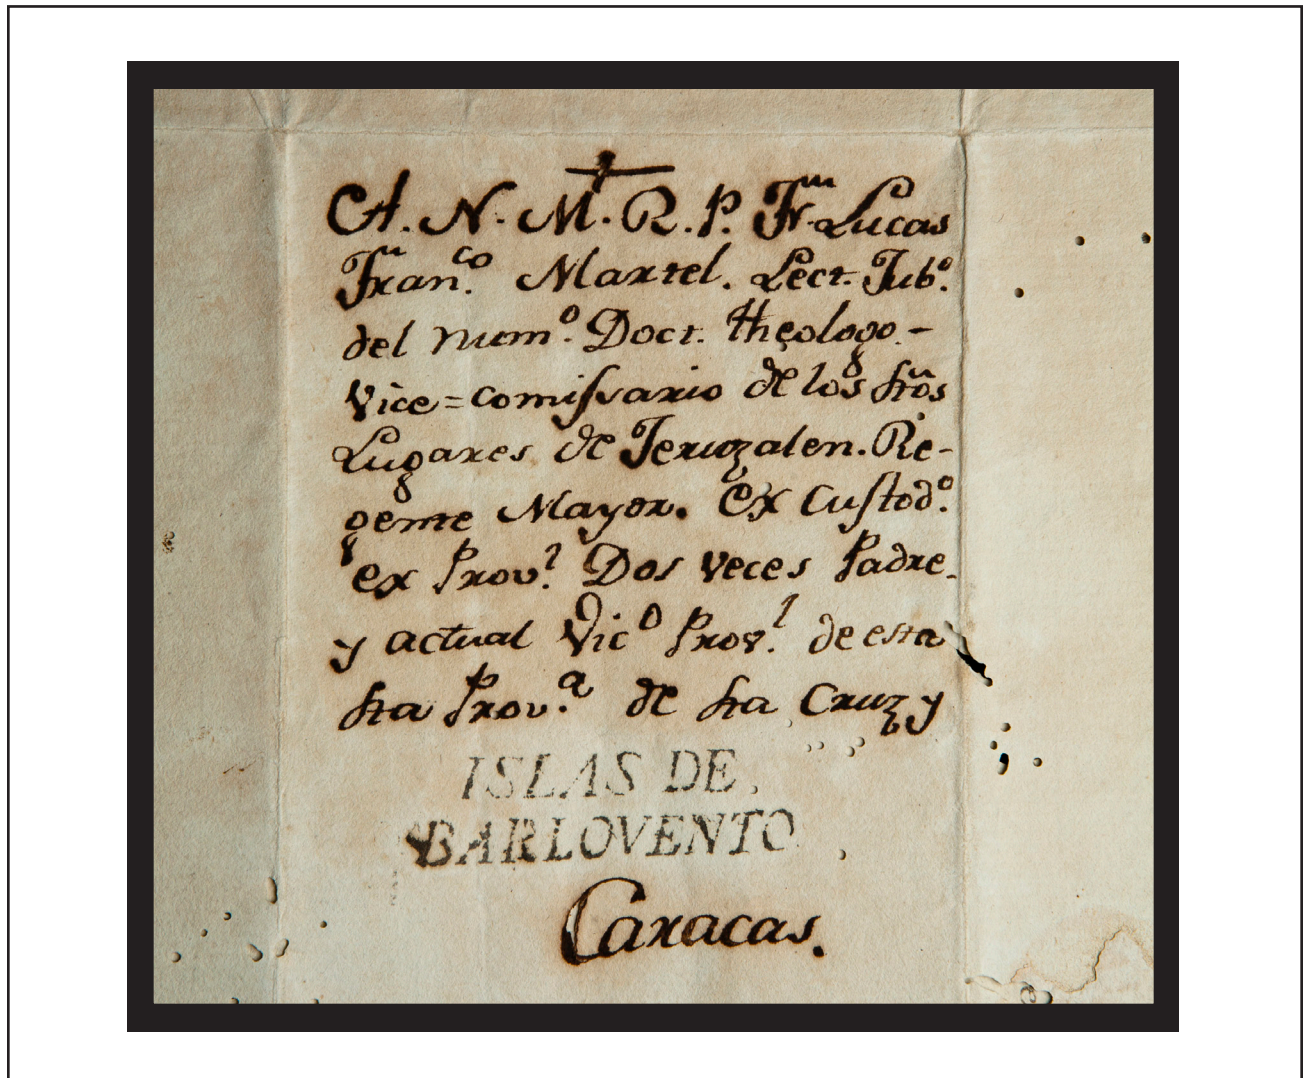 A. N. M. R. P. Fr. Lucas
Franco. Martel. Lect. Jubo.
del numo. Doct. theologo.-
Vice=comissario de los Stos
Lugares de Jeruzalen. Re-
gente Mayor. Ex Custodo.
ex Provl. Dos veces Padre.
y actual Vico Provl. de esta
Sta Prova. de Sta Cruz y
ISLAS DE
BARLOVENTO
Caracas.